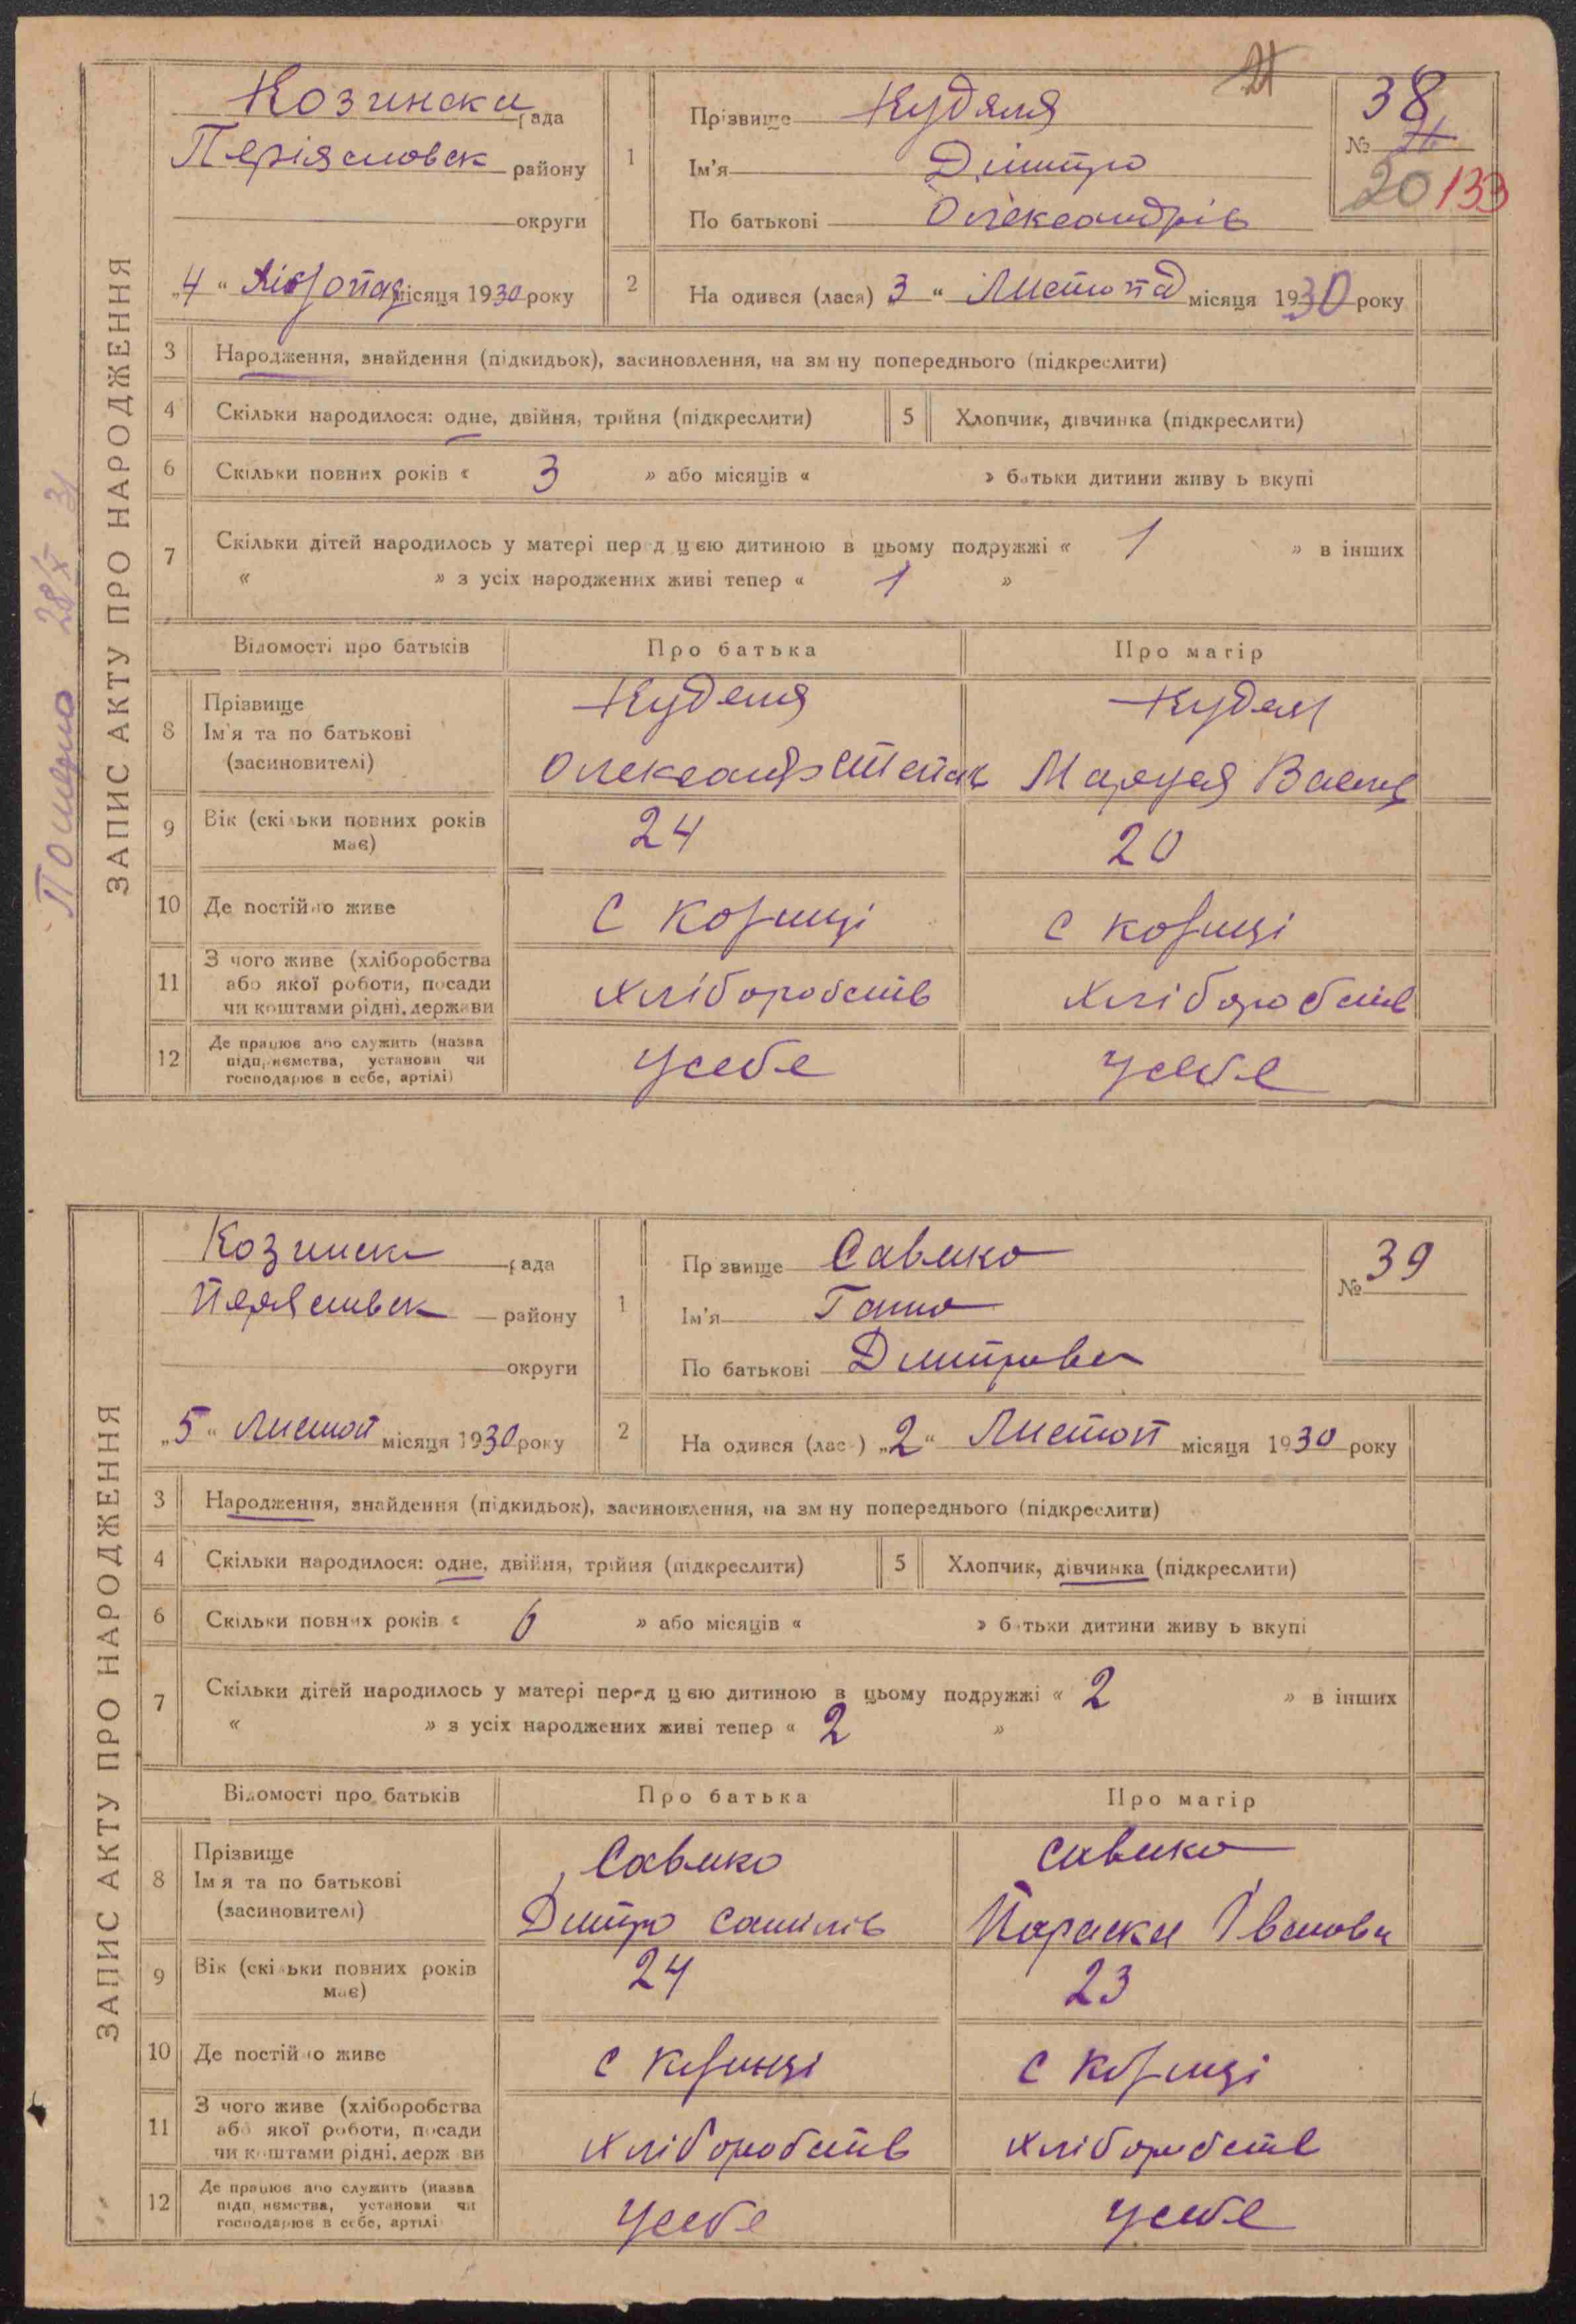 ЗАПИС АКТУ ПРО НАРОДЖЕННЯ
Козинска рада
Періясловск району
округи
„4“ місяця 1930 року
1
Прізвище Кудяля
Ім'я Дімитро
По батькові Олександрів
38
№
20 133
2 На одився (лася) 3 “ Листопад місяця 1930 року
3 Народження, знайдення (підкидьок), засиновлення, на зм ну попереднього (підкреслити)
4 Скільки народилося: одне, двійня, трійня (підкреслити)
5 Хлопчик, дівчинка (підкреслити)
6 Скільки повних років « 3 » або місяців « » батьки дитини живу ь вкупі
7 Скільки дітей народилось у матері перед цією дитиною в цьому подружжі « 1 » в інших
« » з усіх народжених живі тепер « 1 »
Відомості про батьків Про батька Про матір
8 Прізвище
Ім'я та по батькові
(засиновителі)
Куделя
Олександр Степан
Кудел
9 Вік (скільки повних років має) 24 20
10 Де постійно живе с Козинці с Козинці
11 З чого живе (хліборобства
або якої роботи, посади
чи коштами рідні, держави
хліборобств хліборобств
12 Де працює або служить (назва
підприємства, установи чи
господарює в себе, артілі)
усебе усебе
ЗАПИС АКТУ ПРО НАРОДЖЕННЯ
Козинск рада
району
округи
„5“ Листоп місяця 1930 року
1
Пр звище Савико
Ім'я Ганно
По батькові Дмитрова
№ 39
2 На одився (лас ) „2“ Листоп місяця 1930 року
3 Народження, знайдення (підкидьок), засиновлення, на зм ну попереднього (підкреслити)
4 Скільки народилося: одне, двійня, трійня (підкреслити)
5 Хлопчик, дівчинка (підкреслити)
6 Скільки повних років « 6 » або місяців « » батьки дитини живу ь вкупі
7 Скільки дітей народилось у матері перед цією дитиною в цьому подружжі « 2 » в інших
« » з усіх народжених живі тепер « 2 »
Відомості про батьків Про батька Про матір
8 Прізвище
Ім я та по батькові
(засиновителі)
Савико
Дмитро Самилів
Савико
Параска Іванови
9 Вік (скільки повних років має) 24 23
10 Де постійно живе с Козинці с Козинці
11 З чого живе (хліборобства
або якої роботи, посади
чи коштами рідні, держави
хліборобств хліборобств
12 Де працює або служить (назва
підприємства, установи чи
господарює в себе, артілі
усебе усебе